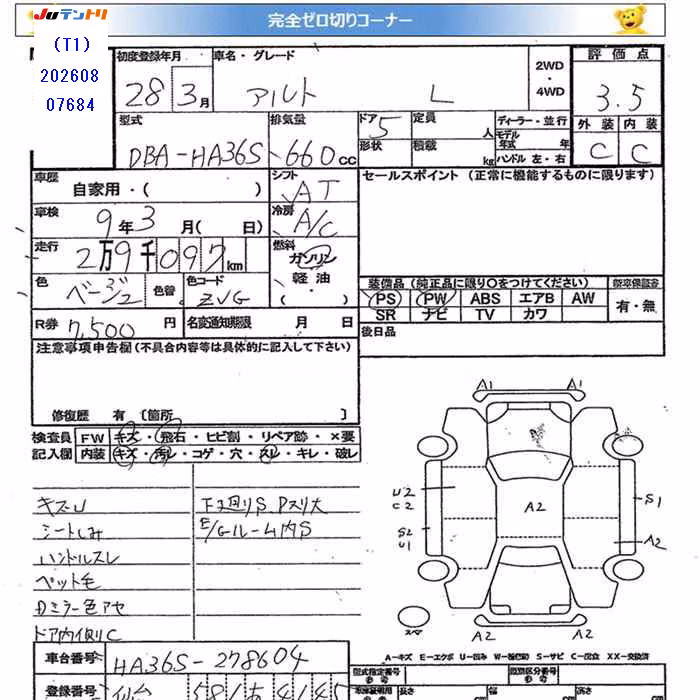 JUテントリ
完全ゼロ切りコーナー
(T1)
202608
07684
初度登録年月 車名・グレード 2WD ・ 4WD 評価点
28 3月 アルト L 3.5
型式 排気量 ドア 5 定員 人 ディーラー・並行 外装 内装
DBA-HA36S 660cc 形状 積載 kg モデル年式 年 ハンドル 左・右 C C
車歴 自家用・( ) シフト AT セールスポイント (正常に機能するものに限ります)
車検 9年3月( 日) 冷房 A/C
走行 2万9千097km 燃料 ガソリン 軽油 ・( )
色 ベージュ 色替 色コード ZVG
装備品 (純正品に限り○をつけてください) 新車保証書
PS PW ABS エアB AW 有・無
SR ナビ TV カワ
R券 7,500円 名変通知期限 月 日 後日品
注意事項申告欄 (不具合内容等は具体的に記入して下さい)
修復歴 有 [箇所 ]
検査員 FW キズ・飛石・ヒビ割・リペア跡・×要
記入欄 内装 キズ・汚レ・コゲ・穴・スレ・キレ・破レ
キズU 下回りS Pスリ大
シートしみ E/Gルーム内S
ハンドルスレ
ペット毛
Dミラー色アセ
ドア内側りC
A1 A1
U2
C2
A2
S1
S2
U1
A2
スペア
A2 A2
A-キズ E-エクボ U-凹み W-補修跡 S-サビ C-腐食 XX-交換済
車台番号 HA36S-278604
型式指定番号 類別区分番号
登録番号 仙台 581 あ 4145
長さ 幅 高さ